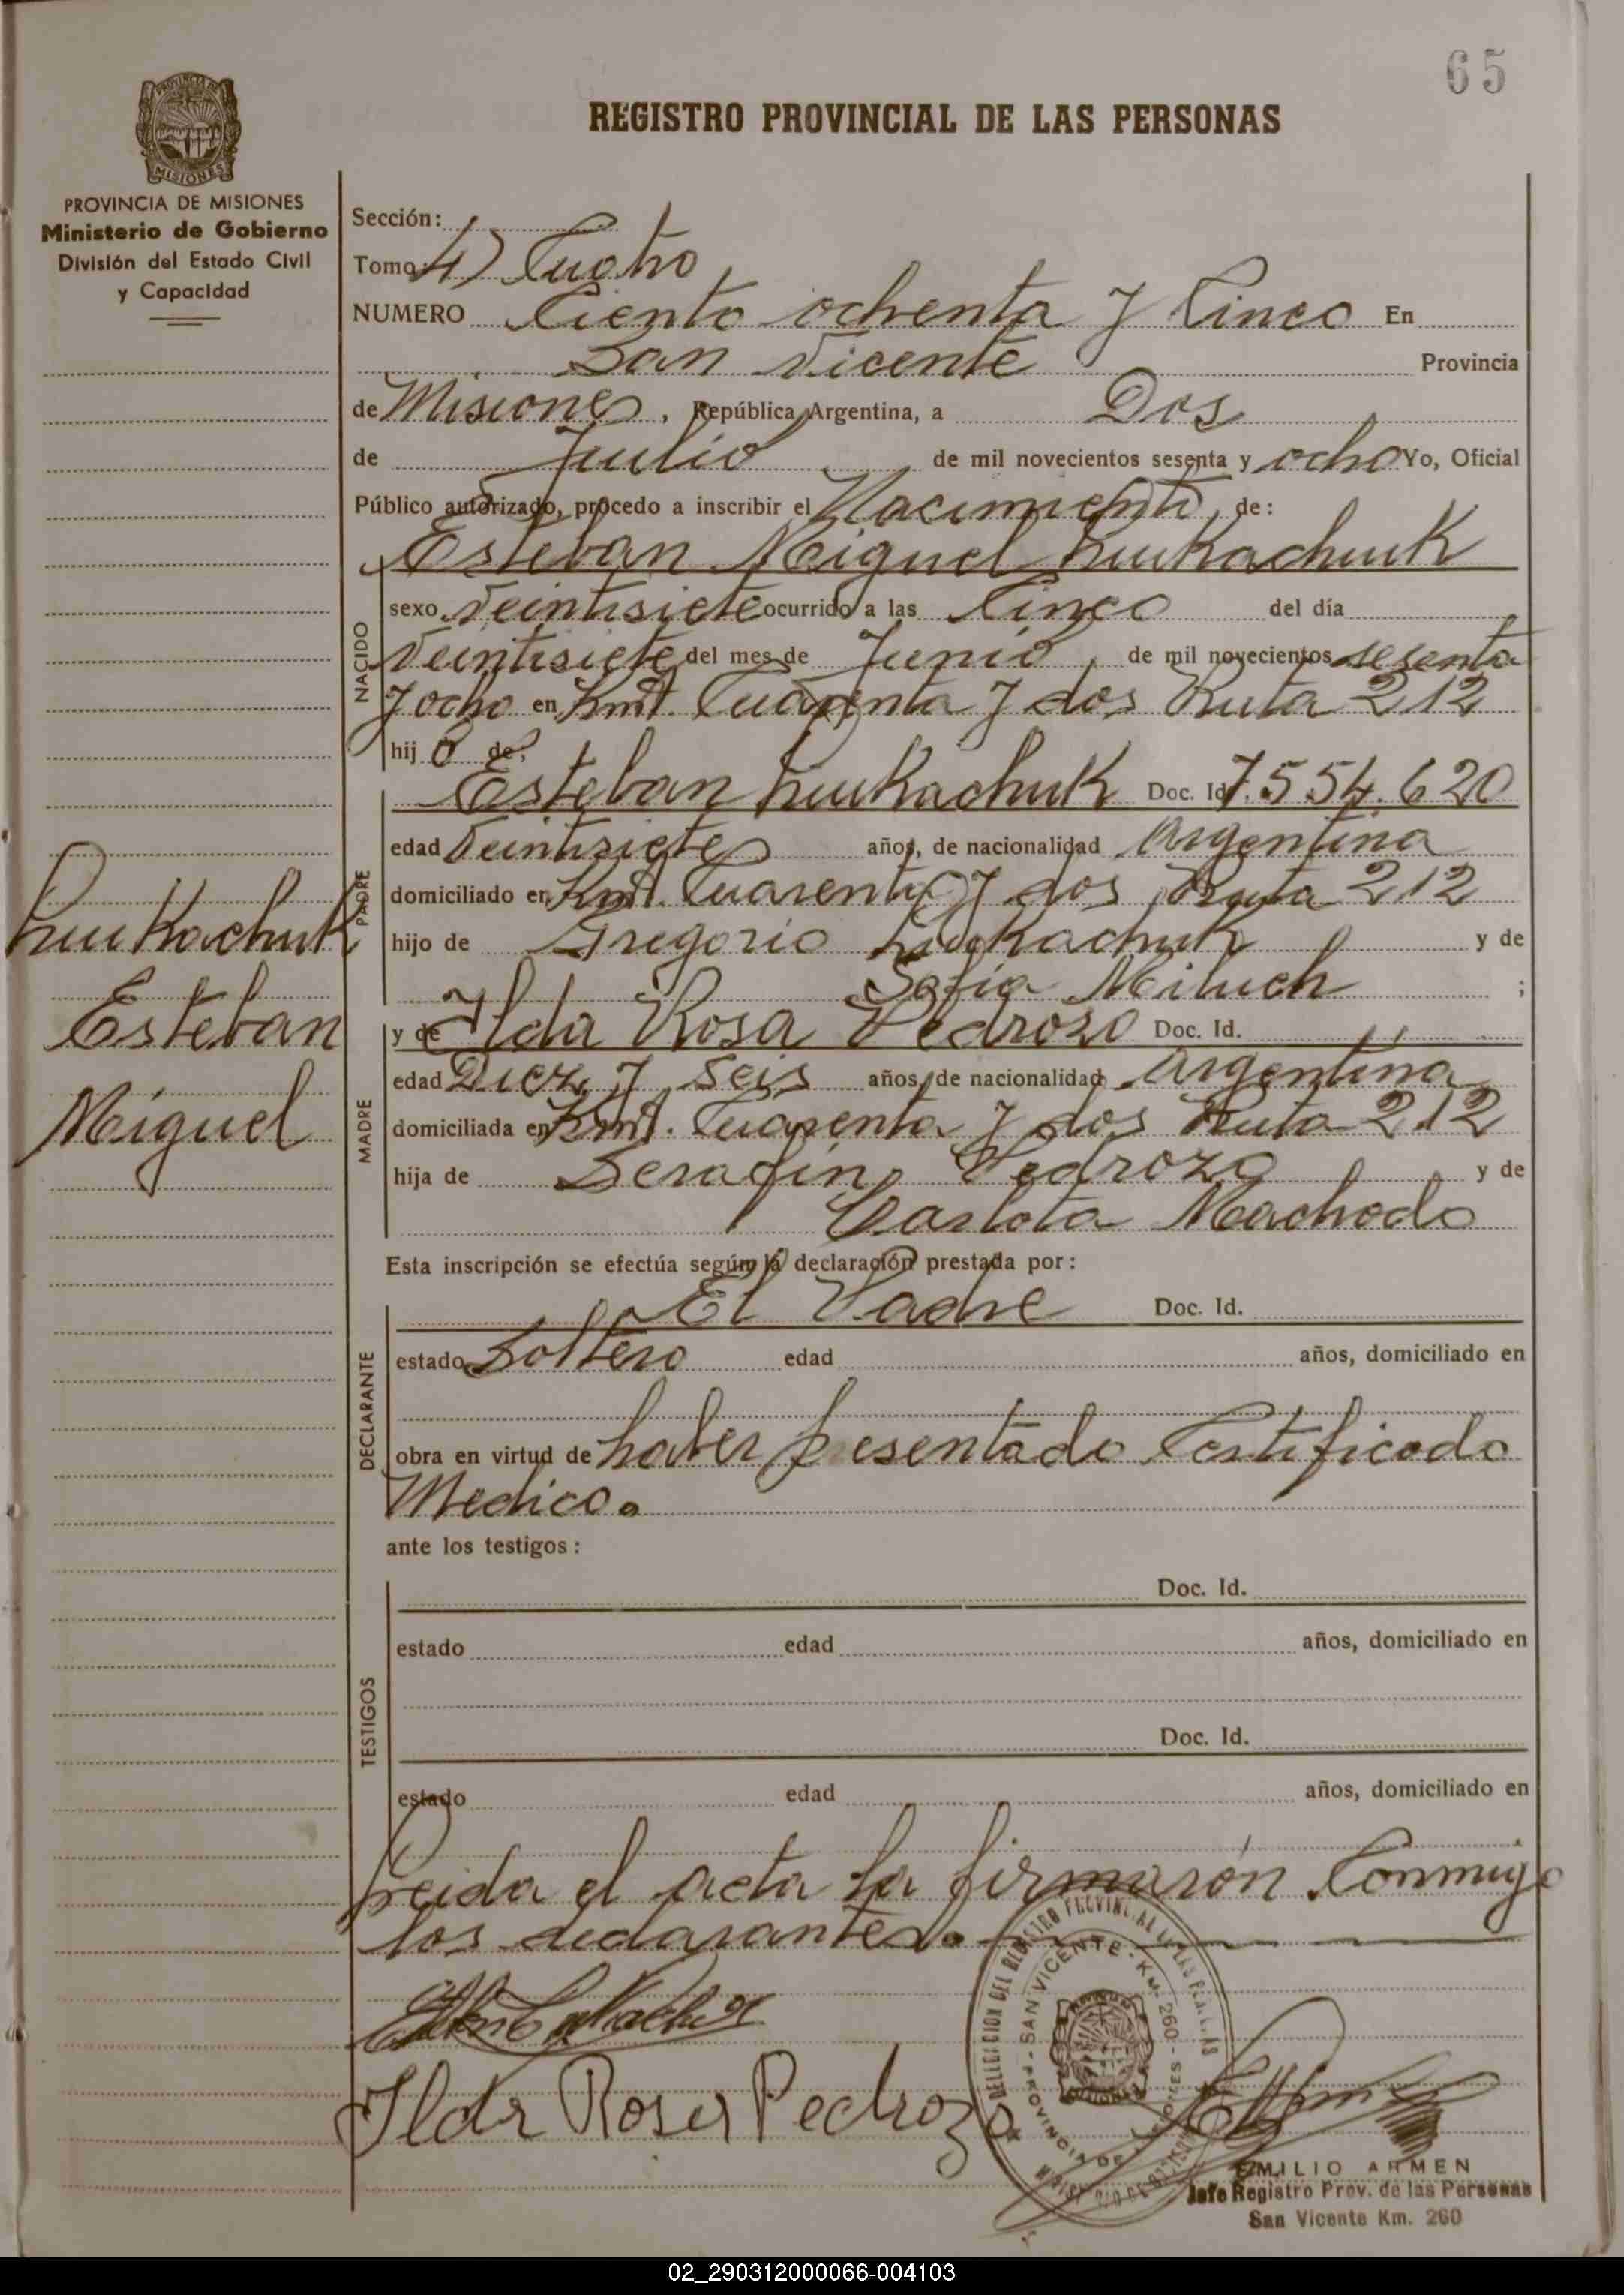 65
REGISTRO PROVINCIAL DE LAS PERSONAS
PROVINCIA DE MISIONES
Ministerio de Gobierno
División del Estado Civil
y Capacidad
Sección:
Tomo: 4) Cuatro
NUMERO Ciento ochenta y Cinco En
San Vicente Provincia
de Misiones, República Argentina, a Dos
de Julio de mil novecientos sesenta y ocho Yo, Oficial
Público autorizado, procedo a inscribir el Nacimiento de:
Esteban Miguel Lukachuk
NACIDO
sexo Veintisiete ocurrido a las Cinco del día
Veintisiete del mes de Junio, de mil novecientos sesenta
y ocho en Kmt. Cuarenta y dos Ruta 212
hij o de:
Esteban Lukachuk Doc. Id. 7.554.620
PADRE
edad Veintisiete años, de nacionalidad Argentina
domiciliado en Kmt. Cuarenta y dos Ruta 212
hijo de Gregorio Lukachuk y de
Sofia Miluch ;
y de Ilda Rosa Pedrozo Doc. Id.
MADRE
edad Diez y Seis años, de nacionalidad Argentina
domiciliada en Kmt. Cuarenta y dos Ruta 212
hija de Serafin Pedrozo y de
Carlota Machado
Lukachuk
Esteban
Miguel
Esta inscripción se efectúa según la declaración prestada por:
El Padre Doc. Id.
DECLARANTE
estado Soltero edad años, domiciliado en
obra en virtud de haber presentado Certificado
Medico.
ante los testigos:
Doc. Id.
TESTIGOS
estado edad años, domiciliado en
Doc. Id.
estado edad años, domiciliado en
Leida el acta la firmarón Conmigo
los declarantes.
Ilda Rosa Pedrozo
SAN VICENTE - KM. 260 - PROVINCIA DE MISIONES
EMILIO ARMEN
Jefe Registro Prov. de las Personas
San Vicente Km. 260
02_290312000066-004103